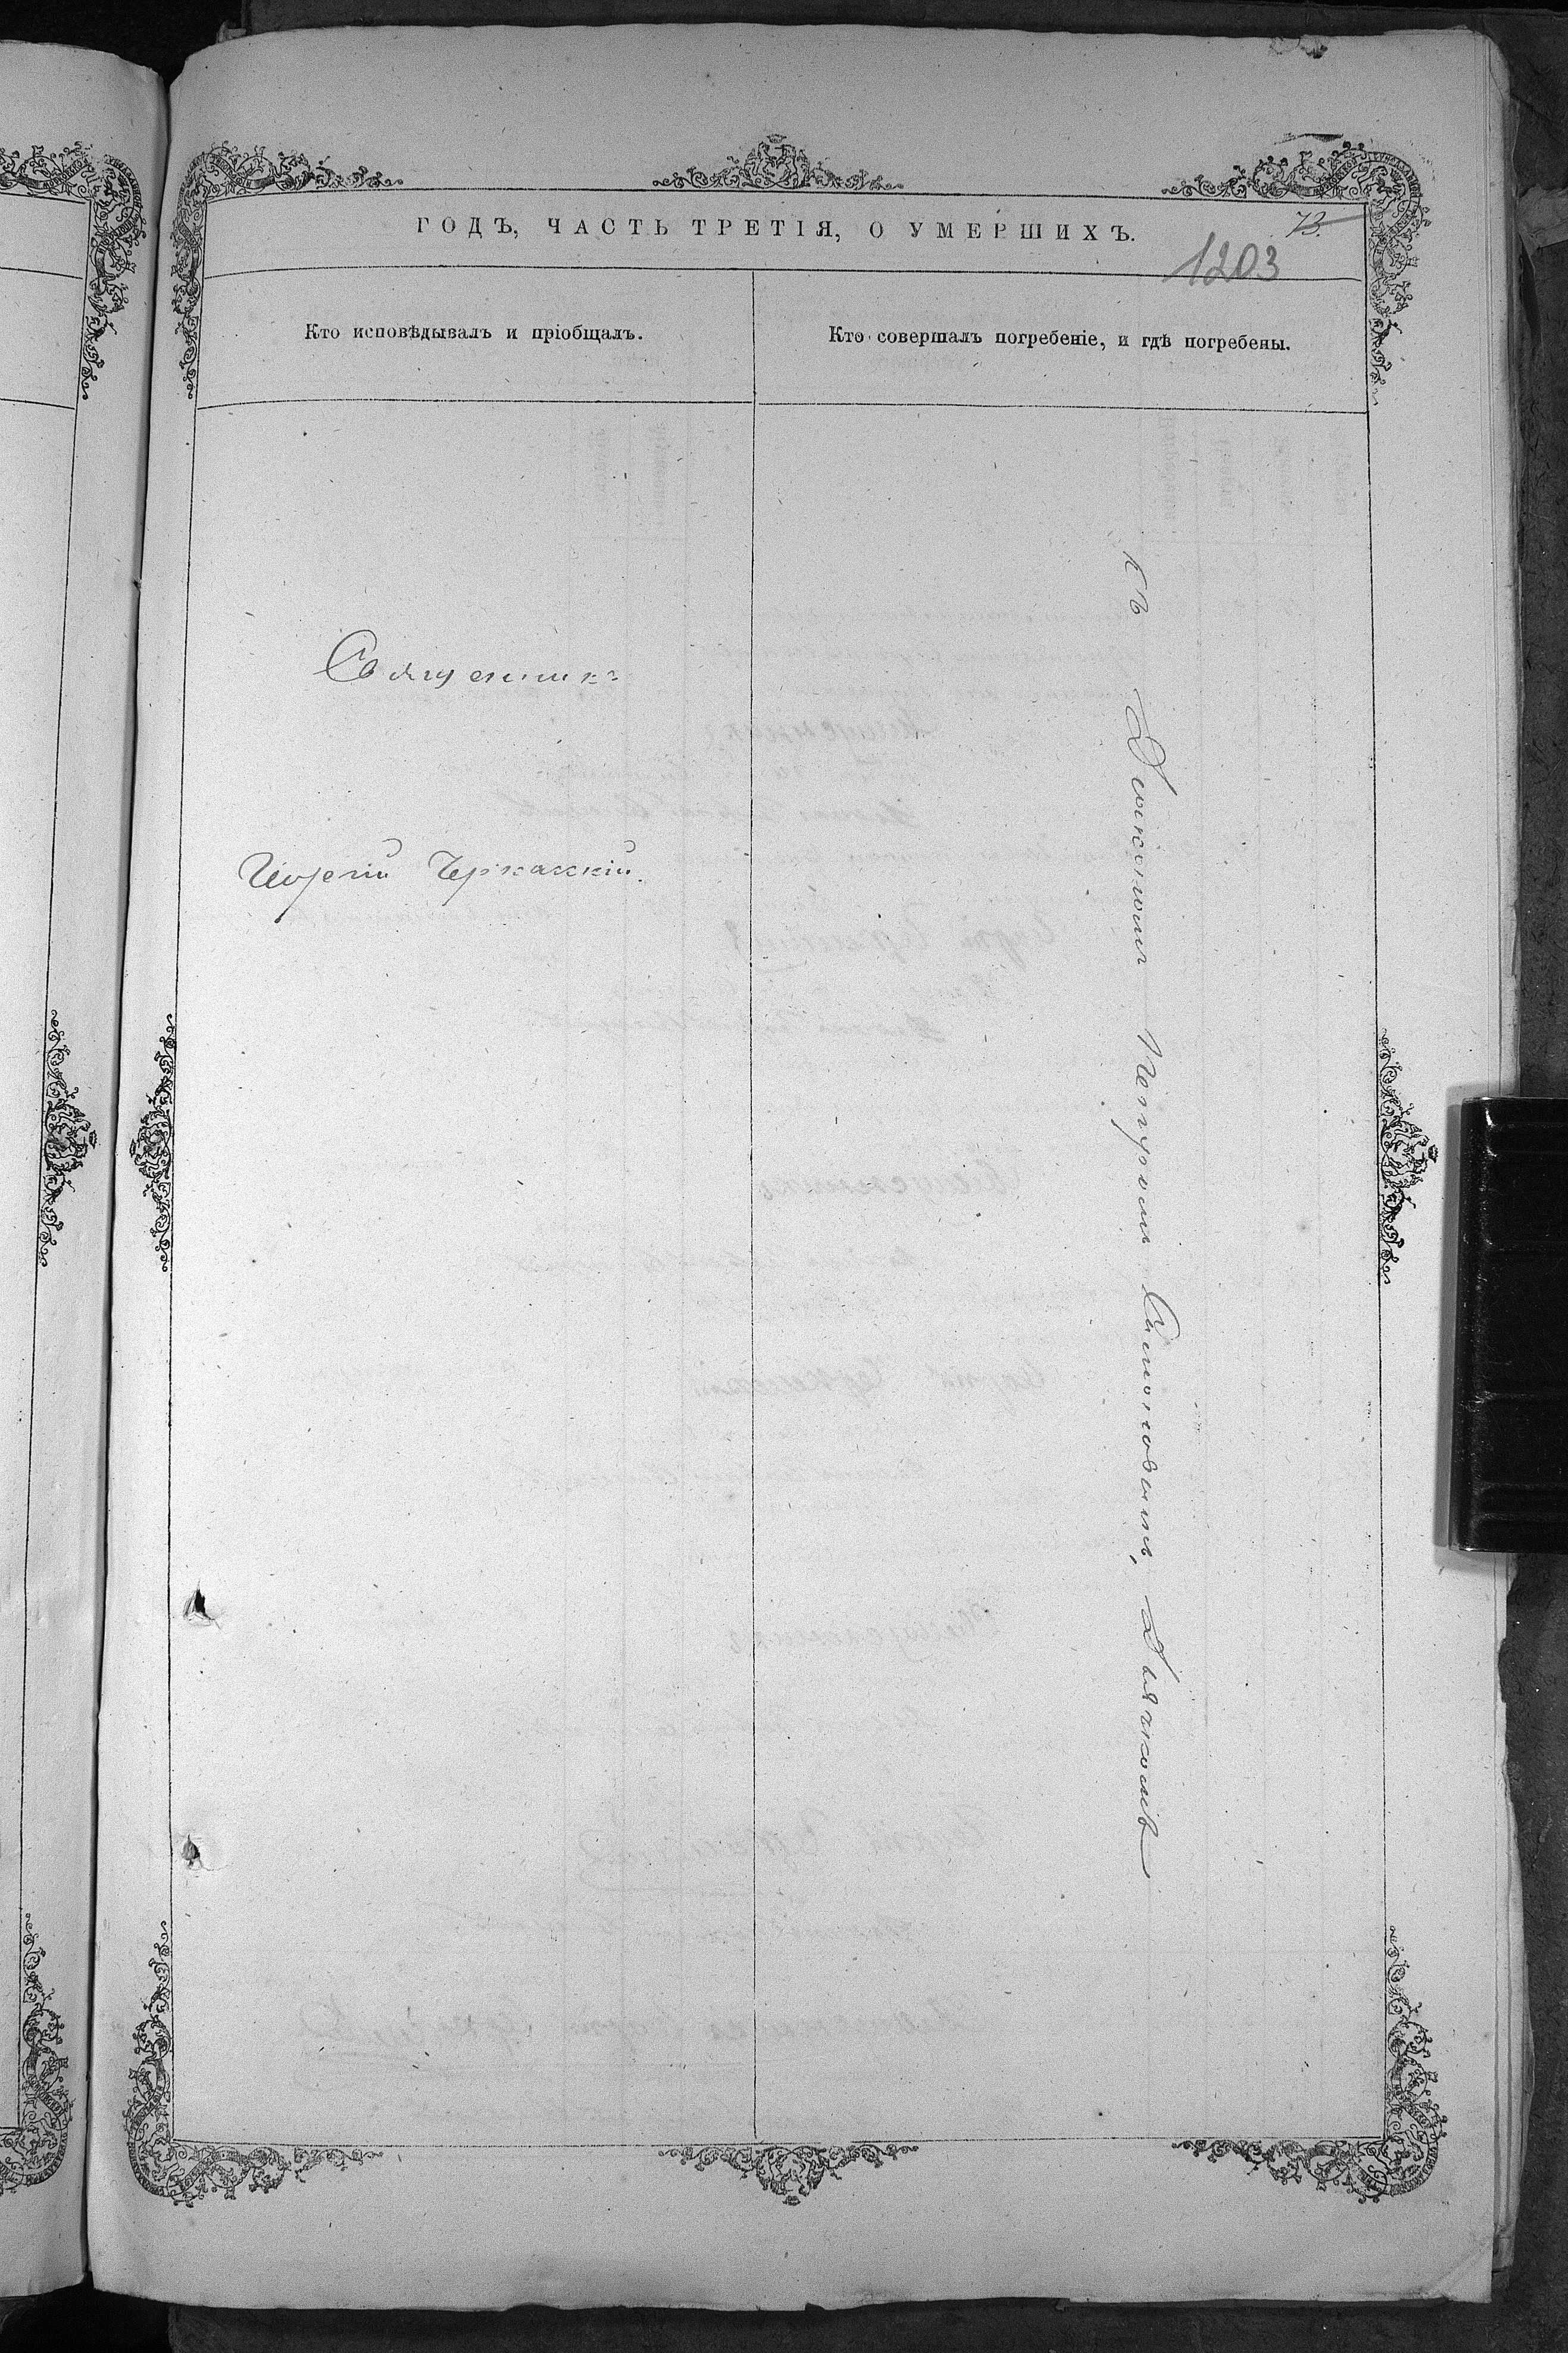 ГОДЪ, ЧАСТЬ ТРЕТІЯ, О УМЕРШИХЪ.
73.
1203
Кто исповѣдывалъ и пріобщалъ.
Кто совершалъ погребеніе, и гдѣ погребены.
Священникъ
Георгій Черкаскій.
съ Діакономъ Петромъ Симоновымъ, Дьячкомъ